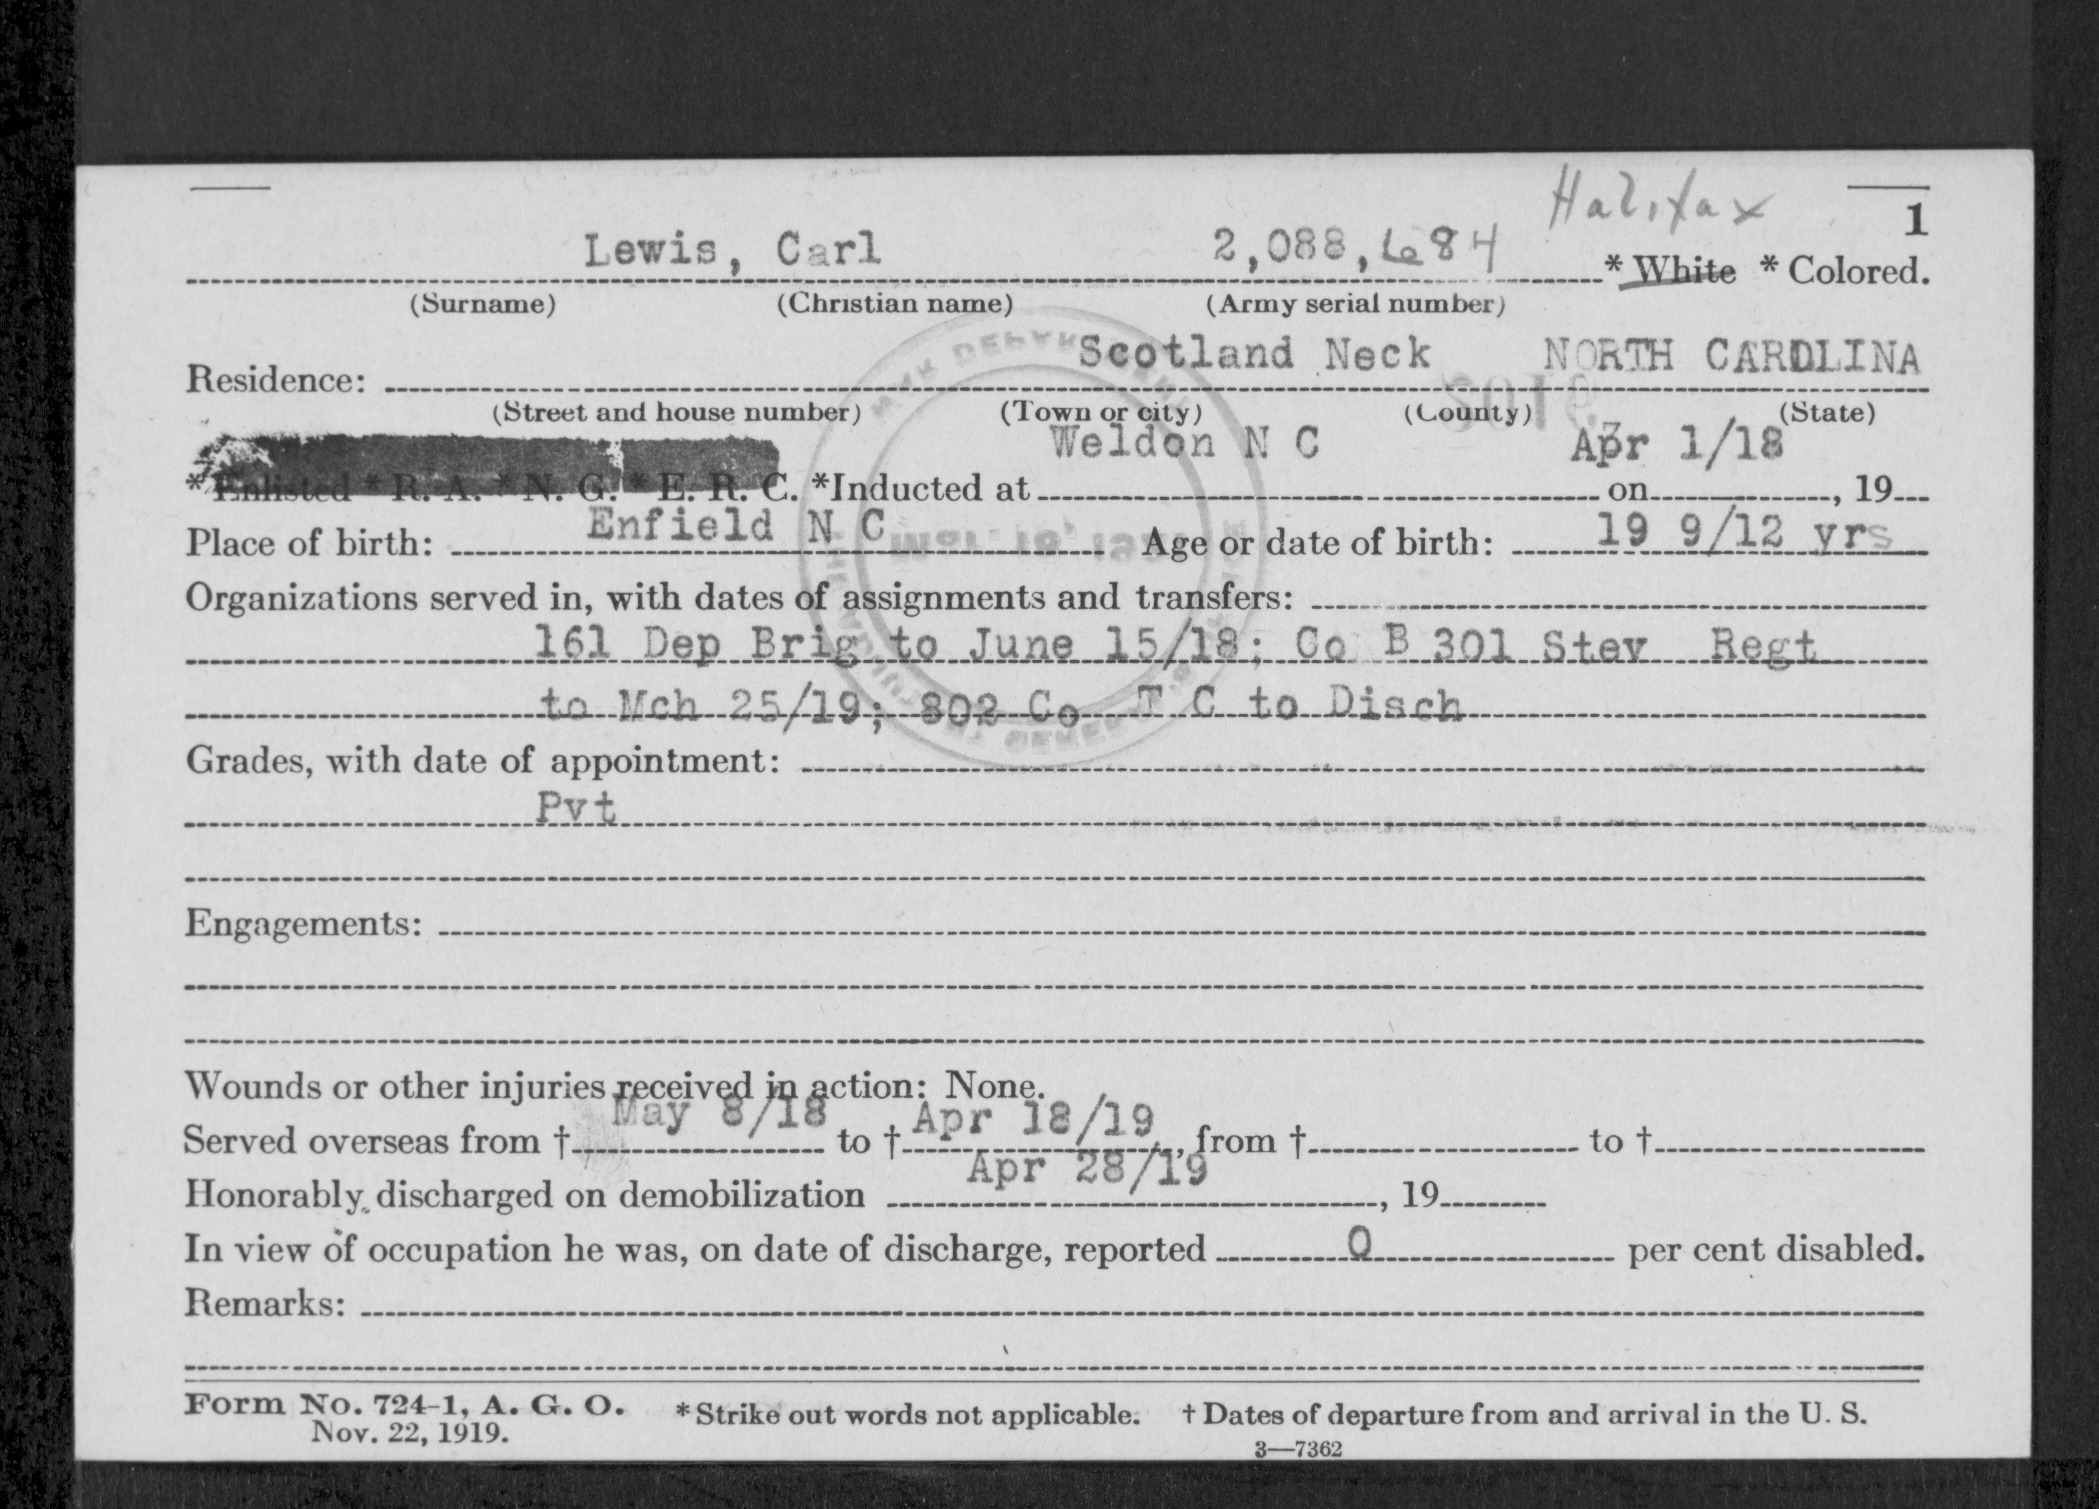 Halifax
1
Lewis, Carl 2,088,684 * White * Colored.
(Surname) (Christian name) (Army serial number)
Residence: Scotland Neck NORTH CAROLINA
(Street and house number) (Town or city) (County) (State)
* Enlisted * R. A. * N. G. * E. R. C. *Inducted at Weldon N C on Apr 1/18, 19
Place of birth: Enfield N C Age or date of birth: 19 9/12 yrs
Organizations served in, with dates of assignments and transfers:
161 Dep Brig to June 15/18; Co B 301 Stev Regt
to Mch 25/19; 802 Co T C to Disch
Grades, with date of appointment:
Pvt
Engagements:
Wounds or other injuries received in action: None.
Served overseas from † May 8/18 to † Apr 18/19, from † to †
Honorably discharged on demobilization Apr 28/19, 19
In view of occupation he was, on date of discharge, reported 0 per cent disabled.
Remarks:
Form No. 724-1, A. G. O. *Strike out words not applicable. † Dates of departure from and arrival in the U. S.
Nov. 22, 1919.
3—7362